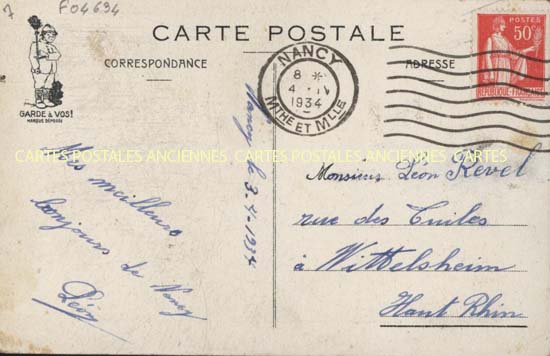 7
F04694
CARTE POSTALE
CORRESPONDANCE
ADRESSE
GARDE à VOS!
MARQUE DÉPOSÉE
NANCY
8 *
4 - IV
1934
MTHE ET MLLE
POSTES
50c
REPUBLIQUE-FRANÇAISE
CARTES POSTALES ANCIENNES CARTES POSTALES ANCIENNES CARTES POSTAL
Nancy le 3-4-1934
Mes meilleurs
bonjours de Nancy
Léon
Monsieur Léon Revel
rue des Tuiles
à Wittelsheim
Haut Rhin